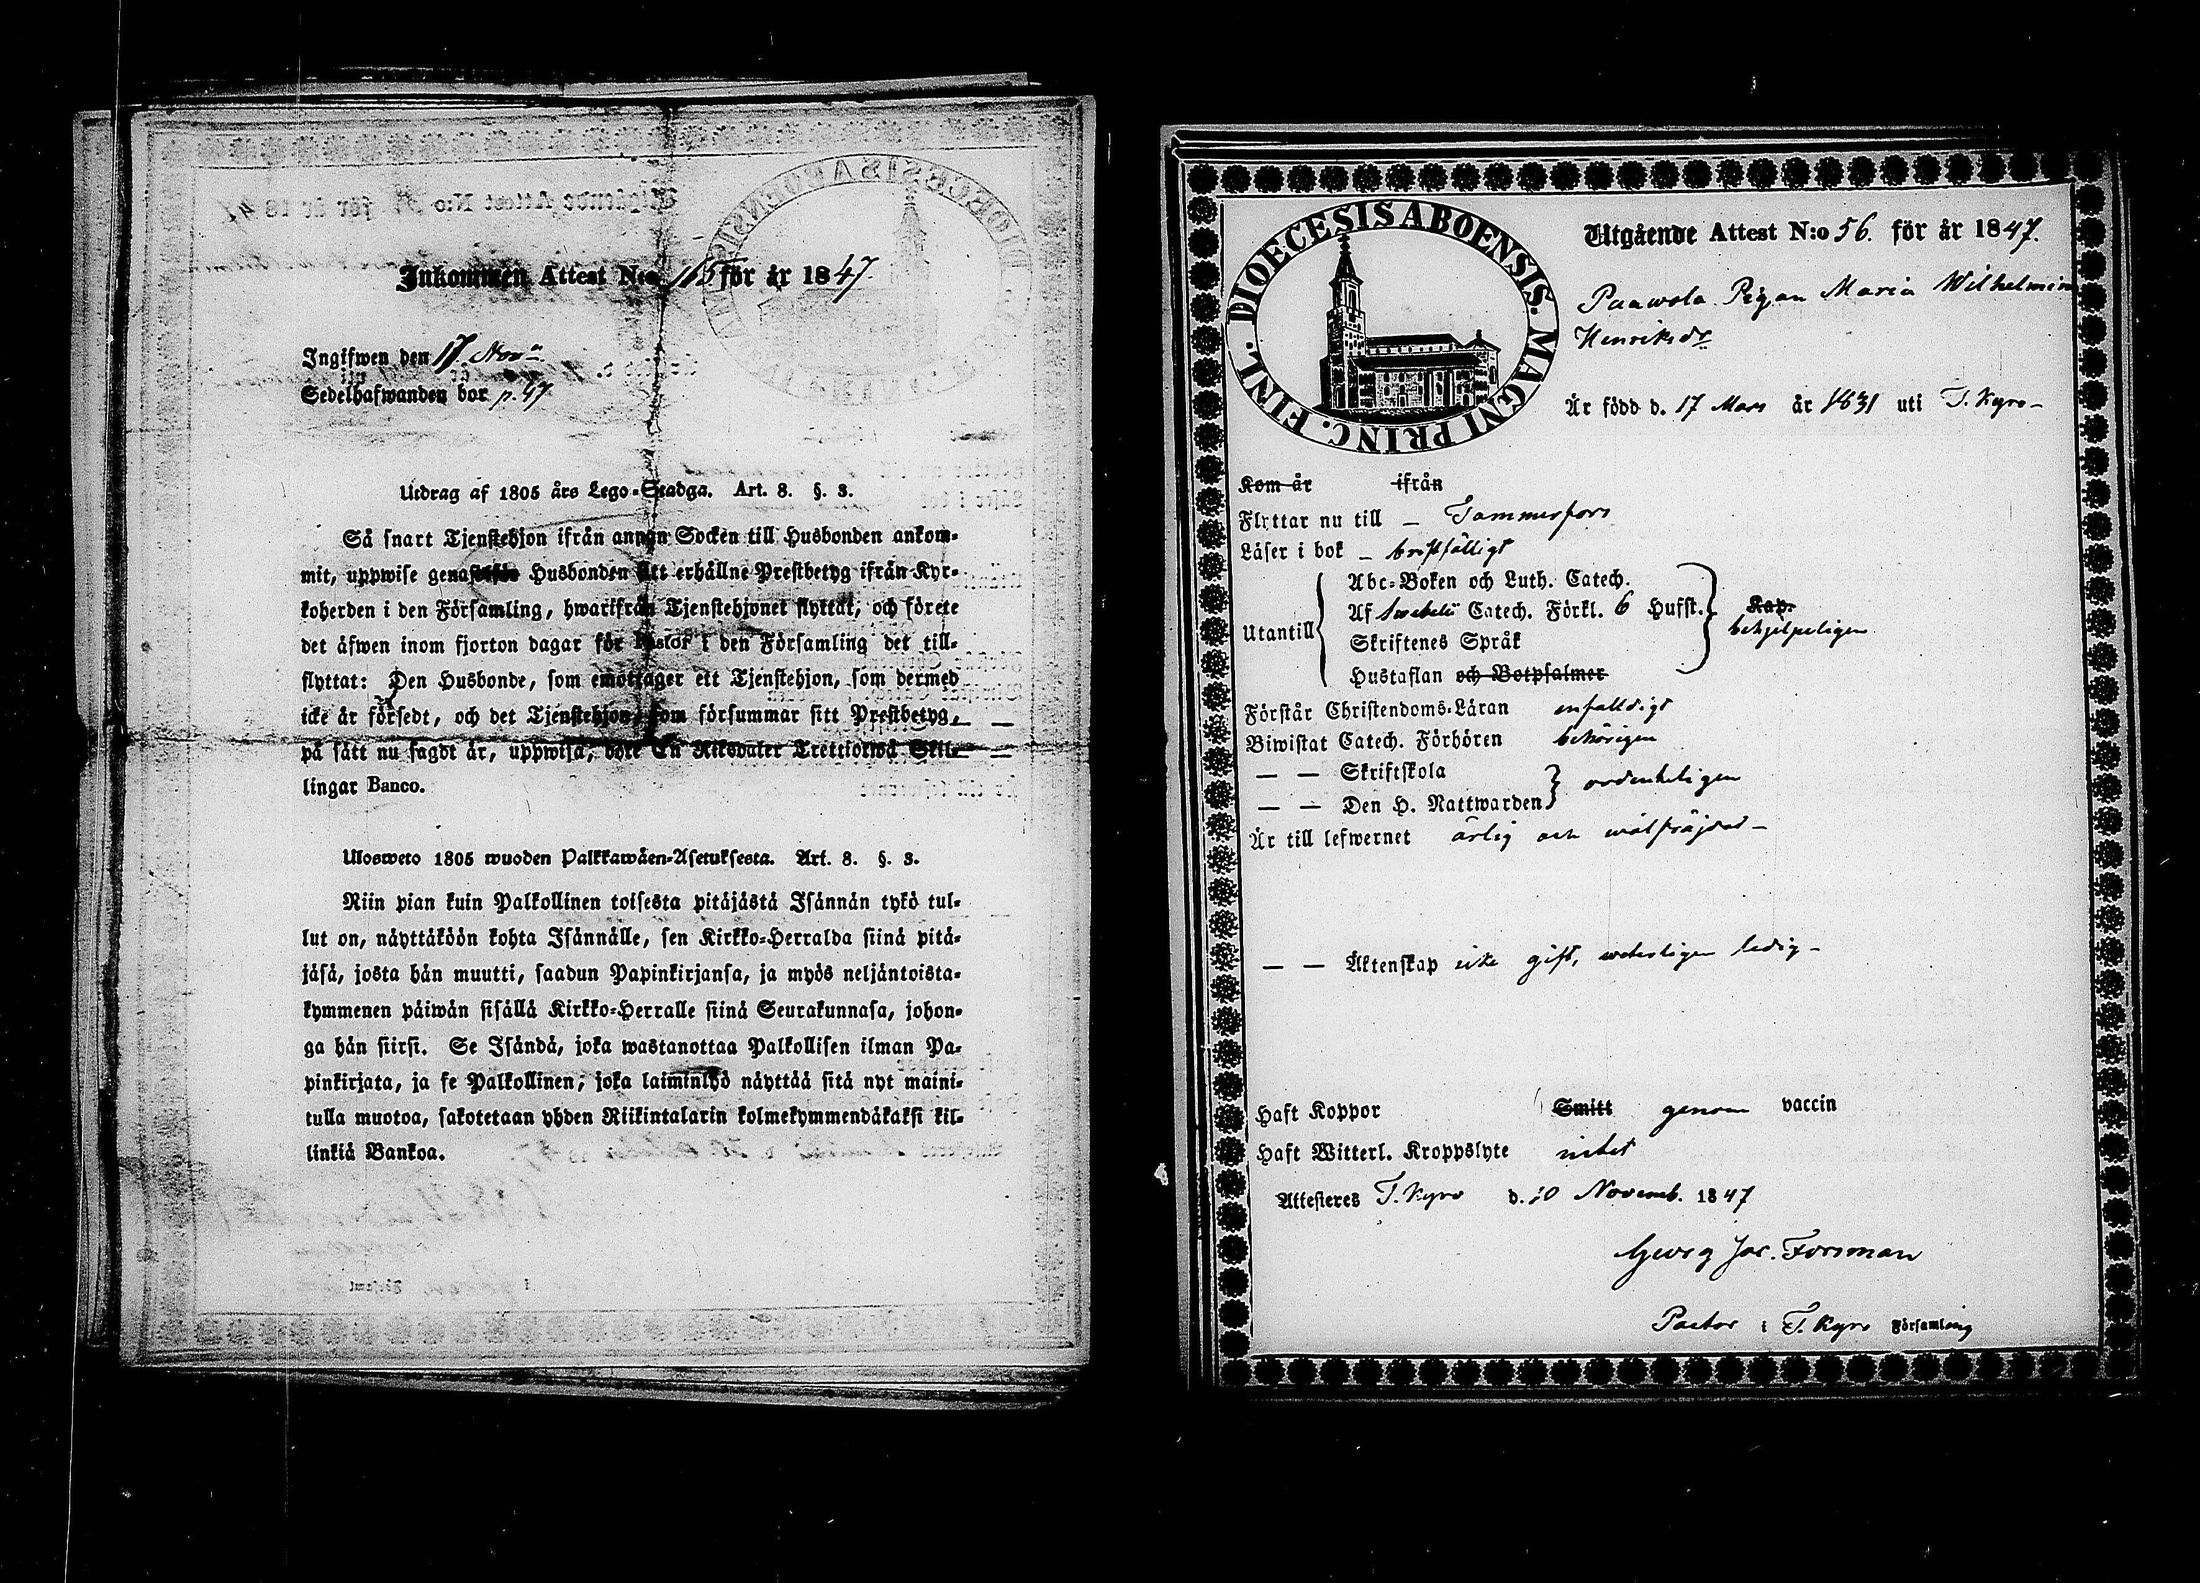 Inkommen Attest N:o 165 för år 1847.
Ingifwen den 17 Nov
Sedelhafwanden bor p. 47
Utdrag af 1805 års Lego-Stadga. Art. 8. §. 3.
Så snart Tjenstehjon ifrån annan Socken till Husbonden ankom-
mit, uppwise genast Husbonden ett erhållne Prestbetyg ifrån Kyr-
koherden i den Församling, hwarifrån Tjenstehjonet flyttat, och förete
det äfwen inom fjorton dagar för Pastor i den Församling det till-
flyttat: Den Husbonde, som emottager ett Tjenstehjon, som dermed
icke är försedt, och det Tjenstehjon, som försummar sitt Prestbetyg,
på sätt nu sagdt är, uppwisa, böte En Riksdaler Trettiotwå Skil-
lingar Banco.
Ulosweto 1805 wuoden Palkkawäen-Asetuksesta. Art. 8. §. 3.
Niin pian kuin Palkollinen toisesta pitäjästä Isännän tykö tul-
lut on, näyttäköön kohta Isännälle, sen Kirkko-Herralda siinä pitä-
jäsä, josta hän muutti, saadun Papinkirjansa, ja myös neljäntoista-
kymmenen päiwän sisällä Kirkko-Herralle siinä Seurakunnasa, johon-
ga hän siirsi. Se Isändä, joka wastanottaa Palkollisen ilman Pa-
pinkirjata, ja se Palkollinen, joka laiminlyö näyttää sitä nyt maini-
tulla muotoa, sakotetaan yhden Riikintalarin kolmekymmendäkaksi kil-
linkiä Bankoa.
DIOECESIS ABOENSIS. MAGNI PRINC. FINL.
Utgående Attest N:o 56. för år 1847.
Paawola Pigan Maria Wilhelmin
Henriksdr
Är född d. 17 Mars år 1831 uti T. Kyro-
Kom år ifrån
Flyttar nu till - Tammerfors
Läser i bok - bristfälligt
Abc-Boken och Luth. Catech.
Af Swebelii Catech. Förkl. 6 Hufst. Kap.
Utantill behjelpeligen
Skriftenes Språk
Hustaflan och Botpsalmer
Förstår Christendoms-Läran enfaldigt
Biwistat Catech. Förhören behörigen
— — Skriftskola
ordenteligen
— — Den H. Nattwarden
Är till lefwernet ärlig och wälfräjdad -
— — Äktenskap icke gift, weterligen ledig -
Haft Koppor Smitt genom vaccin
Haft Witterl. Kroppslyte intet
Attesteres T. Kyro d. 10 Novemb. 1847
Georg Jac. Forsman
Pastor i T. Kyro Församling